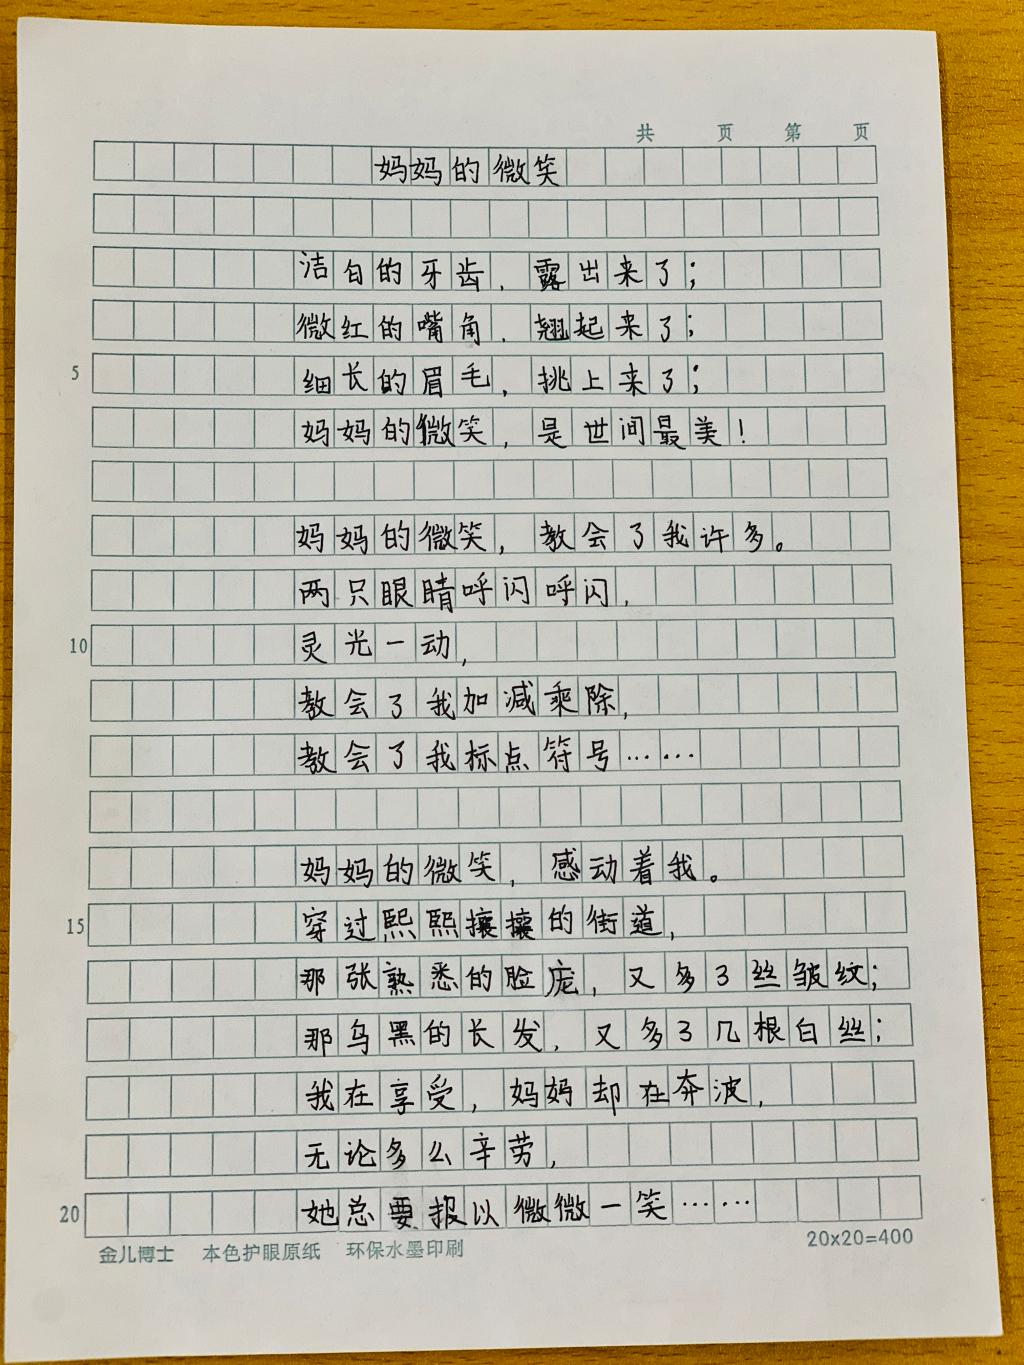 共 页 第 页
妈妈的微笑
洁白的牙齿，露出来了；
微红的嘴角，翘起来了；
5 细长的眉毛，挑上来了；
妈妈的微笑，是世间最美！
妈妈的微笑，教会了我许多。
两只眼睛呼闪呼闪，
10 灵光一动，
教会了我加减乘除，
教会了我标点符号……
妈妈的微笑，感动着我。
15 穿过熙熙攘攘的街道，
那张熟悉的脸庞，又多了丝皱纹；
那乌黑的长发，又多了几根白丝；
我在享受，妈妈却在奔波，
无论多么辛劳，
20 她总要报以微微一笑……
金儿博士 本色护眼原纸 环保水墨印刷 20x20=400